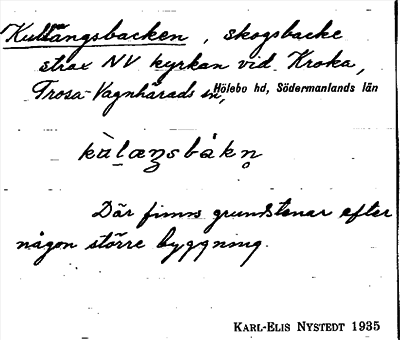 Kullängsbacken, skogsbacke
strax NV kyrkan vid Kroka,
Trosa-Vagnhärads sn, Hölebo hd, Södermanlands län
kùḷæŋsbàkn̥
Där finns grundstenar efter
någon större byggning.
KARL-ELIS NYSTEDT 1935